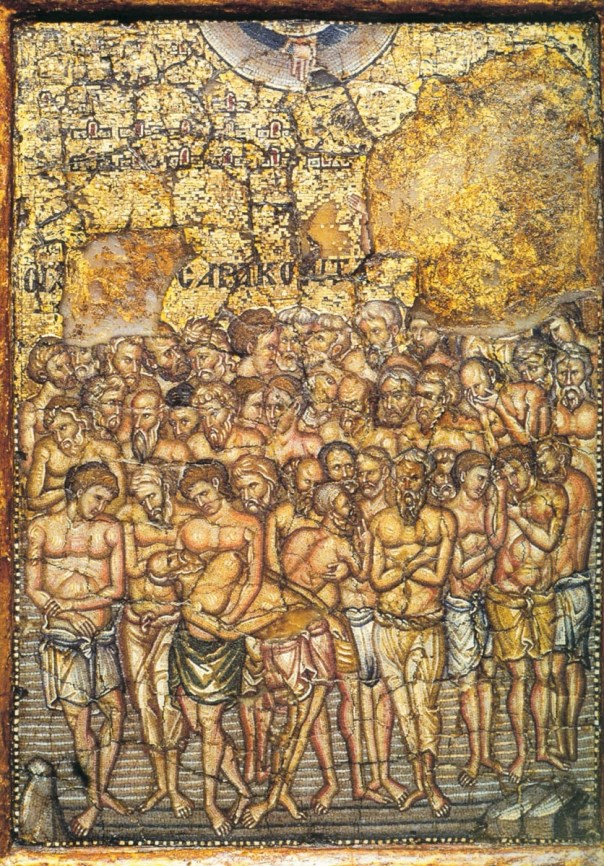 ΟΙ CΑΡΑΚΟΝΤΑ